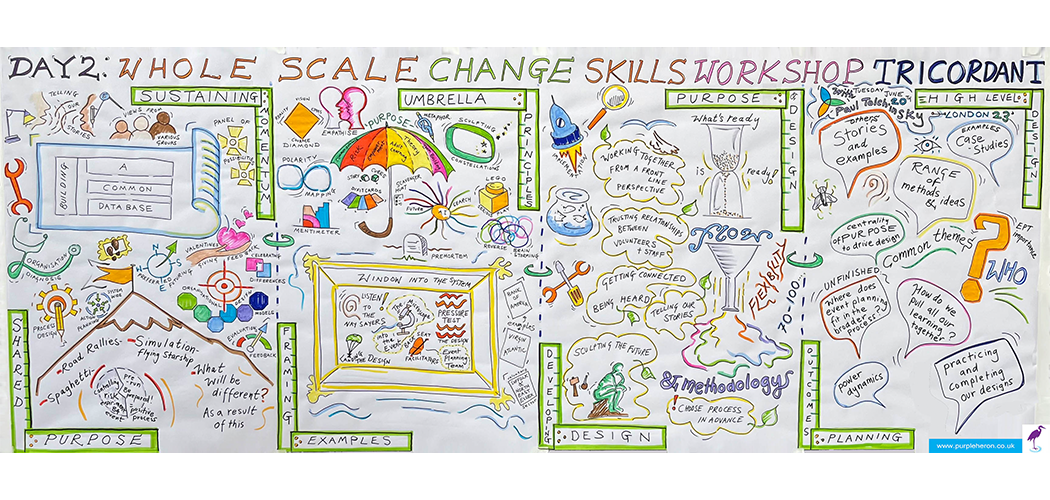 DAY 2: WHOLE SCALE CHANGE SKILLS WORKSHOP TRICORDANT
SUSTAINING
MOMENTUM
TELLING
OUR
STORIES
VIEWS FROM
VARIOUS
GROUPS
PANEL OF
BUILDING
A
COMMON
DATA BASE
ORGANISATION
DIAGNOSIS
VALENTINES
GIVING FEEDBACK
CELEBRATING
DIFFERENCES
PREFERRED
FUTURING
ORGANISATIONAL
MODELS
PROCESS
DESIGN
SYSTEM
WIDE
EVALUATING
FEEDBACK
SHARED
PURPOSE
- Road Rallies -
- Spaghetti
- Simulation -
flying Starship
What
will be
different?
As a result
of this
UMBRELLA
PRINCIPLES
VISION
DIAMOND
EMPATHISE
POLARITY
MAPPING
MENTIMETER
PURPOSE
RISK
STORY CUBES
DIXIT CARDS
SCAVENGER
HUNT
METAPHOR
SCULPTING
CONSTELLATIONS
FUTURE
SEARCH
LEGO
REVERSE
BRAIN
STORMING
PREMORTEM
WINDOW INTO THE SYSTEM
LISTEN
TO
THE NAY SAYERS
PRESSURE
TEST
THE DESIGN
FACILITATORS
Event
Planning
Team
BANK OF
AMERICA
examples
VIRGIN
ATLANTIC
FRAMING
EXAMPLES
PURPOSE
& DESIGN
WORKING TOGETHER
FROM A FRONT
LINE
PERSPECTIVE
What's ready
is ready!
TRUSTING RELATIONSHIPS
BETWEEN
VOLUNTEERS
+ STAFF
FLOW
FLEXIBILITY
70-100
GETTING CONNECTED
BEING HEARD
TELLING OUR
STORIES
SCULPTING THE FUTURE
& methodologys
! CHOOSE PROCESS
IN ADVANCE
DEVELOPING
DESIGN
With
TUESDAY JUNE
20
Paul Tolchinsky
LONDON 23'
HIGH LEVEL
DESIGN
others'
Stories
and
examples
EXAMPLES
Case -
Studies
RANGE
OF
methods
& ideas
centrality
of PURPOSE
to drive design
Common themes
?
EPT
importance
WHO
UNFINISHED
Where does
event planning
fit in the
broader
process?
How do we
pull all our
learning
together
power
dynamics
practicing
and
completing
our designs
OUTCOMES
PLANNING
www.purpleheron.co.uk